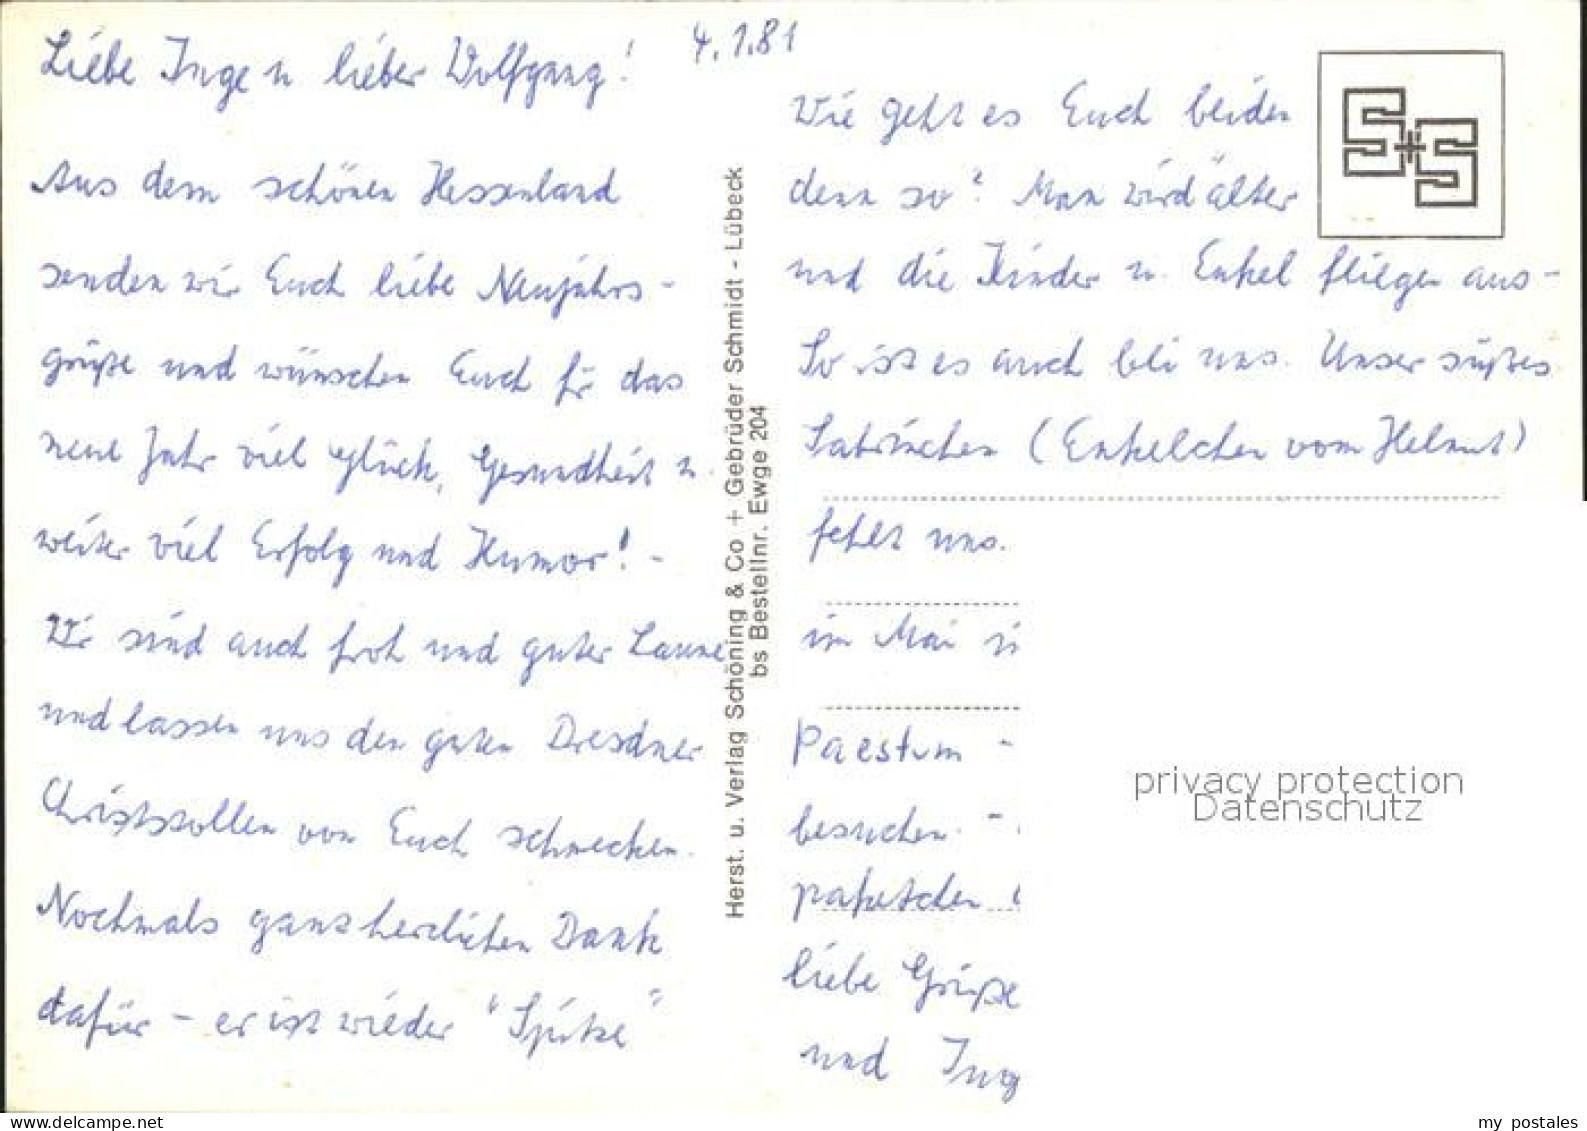 4.1.81
Liebe Inge u lieber Wolfgang!
Aus dem schönen Hessenland
senden wir Euch liebe Neujahrs-
grüße und wünschen Euch für das
neue Jahr viel Glück, Gesundheit u.
weiter viel Erfolg und Humor! -
Wir sind auch froh und guter Laune
und lassen uns den guten Dresdner
Christstollen von Euch schmecken.
Nochmals ganz herzlichen Dank
dafür - er ist wieder "Spitze"
Herst. u. Verlag Schöning & Co + Gebrüder Schmidt - Lübeck
bs Bestellnr. Ewge 204
S+S
Wie geht es Euch beiden
denn so? Man wird älter
und die Kinder u. Enkel fliegen aus-
So ist es auch bei uns. Unser süßes
Sabrinchen (Enkelchen vom Helmut)
fehlt uns.
im Mai
Paestum -
besuchen. -
paketchen
liebe Grüße
und Ing
privacy protection
Datenschutz
www.delcampe.net
my_postales